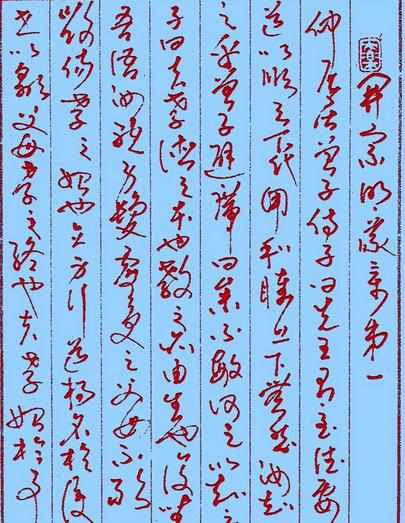 開宗明義章第一
仲尼居曾子侍子曰先王有至德要
道以順天下民用和睦上下無怨汝知
之乎曾子避席曰參不敏何足以知之
子曰夫孝德之本也教之所由生也復坐
吾語汝身體髮膚受之父母不敢
毀傷孝之始也立身行道揚名於後
世以顯父母孝之終也夫孝始於事